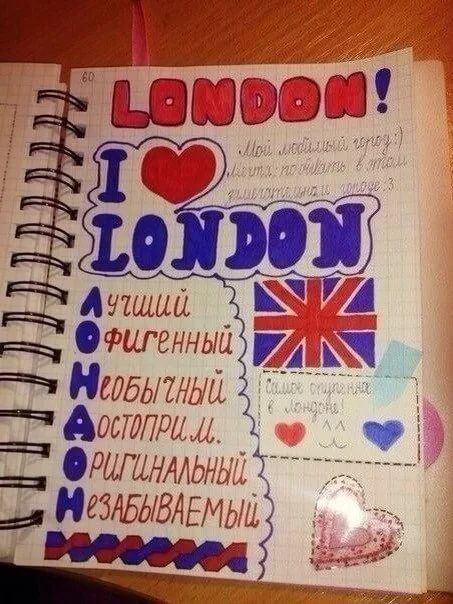 60
LONDON!
Мой любимый город :)
Мечта: побывать в этом
замечательном городе :3
I
LONDON
Лучший
Офигенный
Необычный
Достоприм.
Оригинальный
Незабываемый
Самое
в Лондоне!
^^